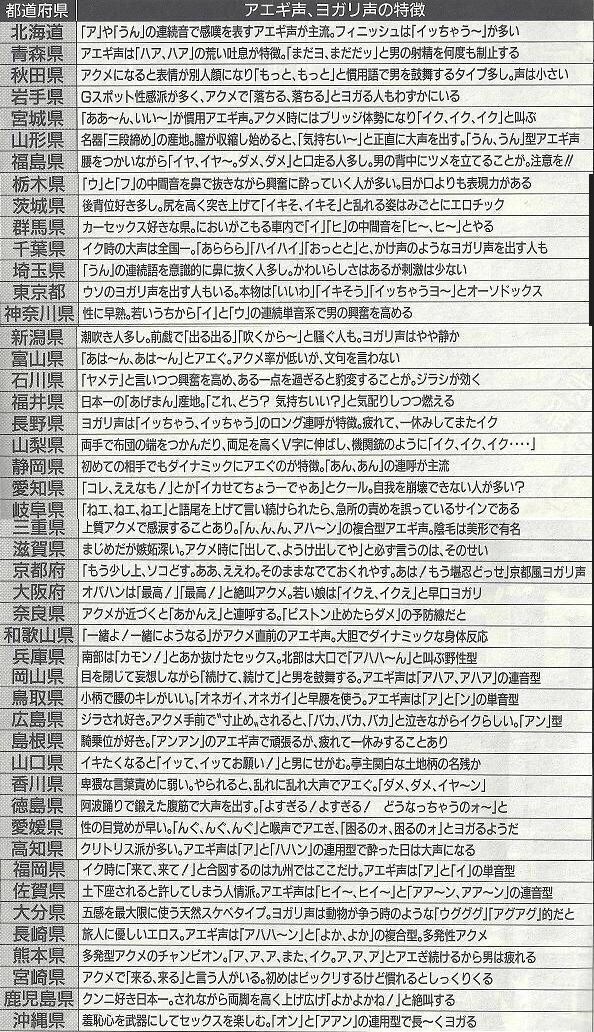 都道府県 アエギ声、ヨガリ声の特徴
北海道 「ア」や「うん」の連続音で感嘆を表すアエギ声が主流。フィニッシュは「イッちゃう〜」が多い
青森県 アエギ声は「ハア、ハア」の荒い吐息が特徴。「まだヨ、まだだッ」と男の射精を何度も制止する
秋田県 アクメになると表情が別人顔になり「もっと、もっと」と慣用語で男を鼓舞するタイプ多し。声は小さい
岩手県 Gスポット性感派が多く、アクメで「落ちる、落ちる」とヨガる人もわずかにいる
宮城県 「ああ〜ん、いい〜」が慣用アエギ声。アクメ時にはブリッジ体勢になり「イク、イク、イク」と叫ぶ
山形県 名器「三段締め」の産地。膣が収縮し始めると、「気持ちい〜」と正直に大声を出す。「うん、うん」型アエギ声
福島県 腰をつかいながら「イヤ、イヤ〜。ダメ、ダメ」と口走る人多し。男の背中にツメを立てることが。注意を!!
栃木県 「ウ」と「フ」の中間音を鼻で抜きながら興奮に酔っていく人が多い。目が口よりも表現力がある
茨城県 後背位好き多し。尻を高く突き上げて「イキそ、イキそ」と乱れる姿はみごとにエロチック
群馬県 カーセックス好きな県。においがこもる車内で「イ」「ヒ」の中間音を「ヒ〜、ヒ〜」とやる
千葉県 イク時の大声は全国一。「あららら」「ハイハイ」「おっとと」と、かけ声のようなヨガリ声を出す人も
埼玉県 「うん」の連続語を意識的に鼻に抜く人多し。かわいらしさはあるが刺激は少ない
東京都 ウソのヨガリ声を出す人もいる。本物は「いいわ」「イキそう」「イッちゃうヨ〜」とオーソドックス
神奈川県 性に早熟。若いうちから「イ」と「ウ」の連続単音系で男の興奮を高める
新潟県 潮吹き人多し。前戯で「出る出る」「吹くから〜」と騒ぐ人も。ヨガリ声はやや静か
富山県 「あは〜ん、あは〜ん」とアエぐ。アクメ率が低いが、文句を言わない
石川県 「ヤメテ」と言いつつ興奮を高め、ある一点を過ぎると豹変することが。ジラシが効く
福井県 日本一の「あげまん」産地。「これ、どう? 気持ちいい?」と気配りしつつ燃える
長野県 ヨガリ声は「イッちゃう、イッちゃう」のロング連呼が特徴。疲れて、一休みしてまたイク
山梨県 両手で布団の端をつかんだり、両足を高くV字に伸ばし、機関銃のように「イク、イク、イク・・・・」
静岡県 初めての相手でもダイナミックにアエぐのが特徴。「あん、あん」の連呼が主流
愛知県 「コレ、ええなも!」とか「イカせてちょうーでゃあ」とクール。自我を崩壊できない人が多い?
岐阜県 「ねエ、ねエ、ねエ」と語尾を上げて言い続けられたら、急所の責めを誤っているサインである
三重県 上質アクメで感涙することあり。「ん、ん、ん、アハ〜ン」の複合型アエギ声。陰毛は美形で有名
滋賀県 まじめだが嫉妬深い。アクメ時に「出して、ようけ出してや」と必ず言うのは、そのせい
京都府 「もう少し上、ソコどす。ああ、ええわ。そのままなでておくれやす。あは!もう堪忍どっせ」京都風ヨガリ声
大阪府 オバハンは「最高!」「最高!」と絶叫アクメ。若い娘は「イクぇ、イクえ」と早口ヨガリ
奈良県 アクメが近づくと「あかんえ」と連呼する。「ピストン止めたらダメ」の予防線だと
和歌山県 「一緒よ!一緒にようなる」がアクメ直前のアエギ声。大胆でダイナミックな身体反応
兵庫県 南部は「カモン!」とあか抜けたセックス。北部は大口で「アハハ〜ん」と叫ぶ野性型
岡山県 目を閉じて妄想しながら「続けて、続けて」と男を鼓舞する。アエギ声は「アハア、アハア」の連音型
鳥取県 小柄で腰のキレがいい。「オネガイ、オネガイ」と早腰を使う。アエギ声は「ア」と「ン」の単音型
広島県 ジラされ好き。アクメ手前で〝寸止め〟されると、「バカ、バカ、バカ」と泣きながらイクらしい。「アン」型
島根県 騎乗位が好き。「アンアン」のアエギ声で頑張るが、疲れて一休みすることあり
山口県 イキたくなると「イッて、イッてお願い!」と男にせがむ。亭主関白な土地柄の名残か
香川県 卑猥な言葉責めに弱い。やられると、乱れに乱れ大声でアエぐ。「ダメ、ダメ、イヤ〜ン」
徳島県 阿波踊りで鍛えた腹筋で大声を出す。「よすぎる!よすぎる! どうなっちゃうのォ〜」と
愛媛県 性の目覚めが早い。「んぐ、んぐ、んぐ」と喉声でアエぎ、「困るのォ、困るのォ」とヨガるようだ
高知県 クリトリス派が多い。アエギ声は「ア」と「ハハン」の連用型で酔った日は大声になる
福岡県 イク時に「来て、来て!」と合図するのは九州ではここだけ。アエギ声は「ア」と「イ」の単音型
佐賀県 土下座されると許してしまう人情派。アエギ声は「ヒイ〜、ヒイ〜」と「アア〜ン、アア〜ン」の連音型
大分県 五感を最大限に使う天然スケベタイプ。ヨガリ声は動物が争う時のような「ウグググ」「アグアグ」的だと
長崎県 旅人に優しいエロス。アエギ声は「アハハ〜ン」と「よか、よか」の複合型。多発性アクメ
熊本県 多発型アクメのチャンピオン。「ア、ア、ア、また、イク。ア、ア、ア」とアエぎ続けるから男は疲れる
宮崎県 アクメで「来る、来る」と言う人がいる。初めはビックリするけど慣れるとしっくりくる
鹿児島県 クンニ好き日本一。されながら両脚を高く上げ広げ「よかよかね!」と絶叫する
沖縄県 羞恥心を武器にしてセックスを楽しむ。「オン」と「アアン」の連用型で長〜くヨガる